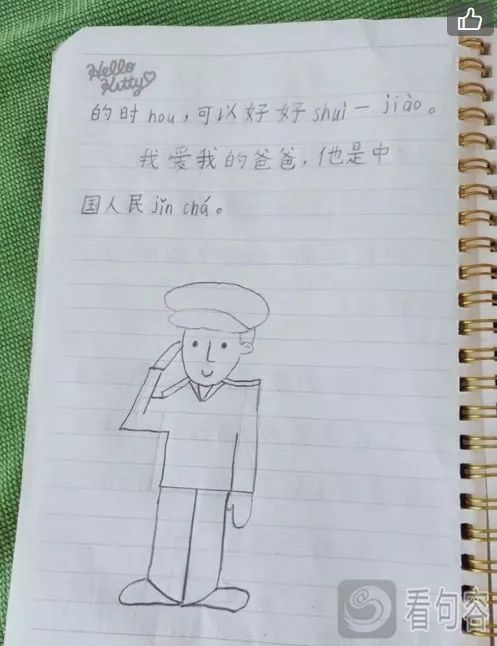 Hello
Kitty
的时hou，可以好好shuì一jiào。
我爱我的爸爸，他是中
国人民jǐn chá。
看句容